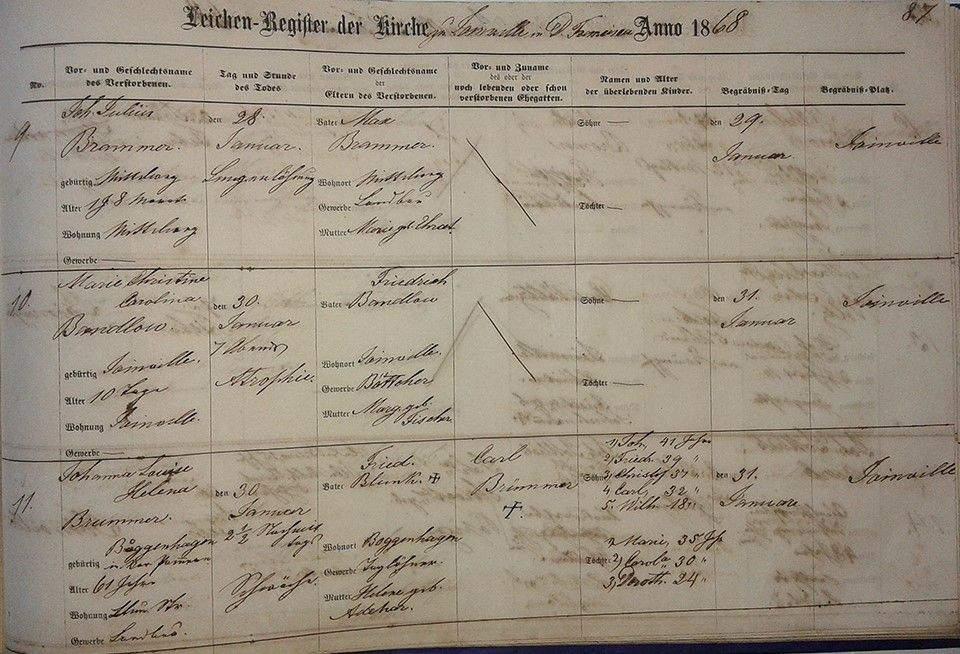 87
Leichen-Register der Kirche zu Joinville in D. Francisca Anno 1868
No.
Vor- und Geschlechtsname des Verstorbenen.
Tag und Stunde des Todes
Vor- und Geschlechtsname der Eltern des Verstorbenen.
Vor- und Zuname des oder der noch lebenden oder schon verstorbenen Ehegatten.
Namen und Alter der überlebenden Kinder.
Begräbniß-Tag
Begräbniß-Platz.
9
Joh. Julius
Brammer.
gebürtig Mittelweg
Alter 1 J 8 Monat
Wohnung Mittelweg
Gewerbe —
den 28.
Januar.
Vater Max
Brammer.
Wohnort Mittelweg
Gewerbe Landbau
Mutter Marie geb.
Söhne —
Töchter —
den 29.
Januar
Joinville
10.
Marie Christine
Carolina
Bandlow.
gebürtig Joinville.
Alter 10 Tage
Wohnung Joinville.
Gewerbe —
den 30.
Januar
7 Abends
Atrophie.
Friedrich
Vater Bandlow
Wohnort Joinville.
Gewerbe Böttcher
Mutter Marg. geb.
Fischer
Söhne —
Töchter —
den 31.
Januar
Joinville
11.
Johanna Louise
Helena
Brummer.
Boggenhagen
gebürtig in der Pommern
Alter 61 Jahre
Wohnung Str.
Gewerbe Landbau.
den 30.
Januar
2 1/2 Nachmittags
Schwäche.
Fried.
Vater Blunk. ✝
Wohnort Boggenhagen
Gewerbe Taglöhner.
Mutter Helene geb.
Carl
Brümmer
✝
1) Joh. 41 Jhr
2) Friedr. 39 "
Söhne 3) Christof 37 "
4 Carl, 32 "
5. Wilh. 18 "
1 Marie, 35 Jhr
Töchter 2) Carola 30 "
3) Doroth. 24 "
den 31.
Januar
Joinville